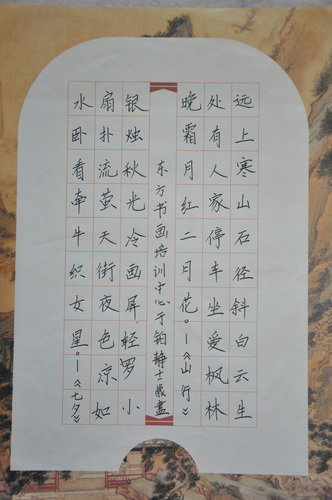 远上寒山石径斜白云生
处有人家停车坐爱枫林
晚霜月红二月花。—《山行》
东方书画培训中心于铂静
银烛秋光冷画屏轻罗小
扇扑流萤天街夜色凉如
水卧看牵牛织女星。—《七夕》